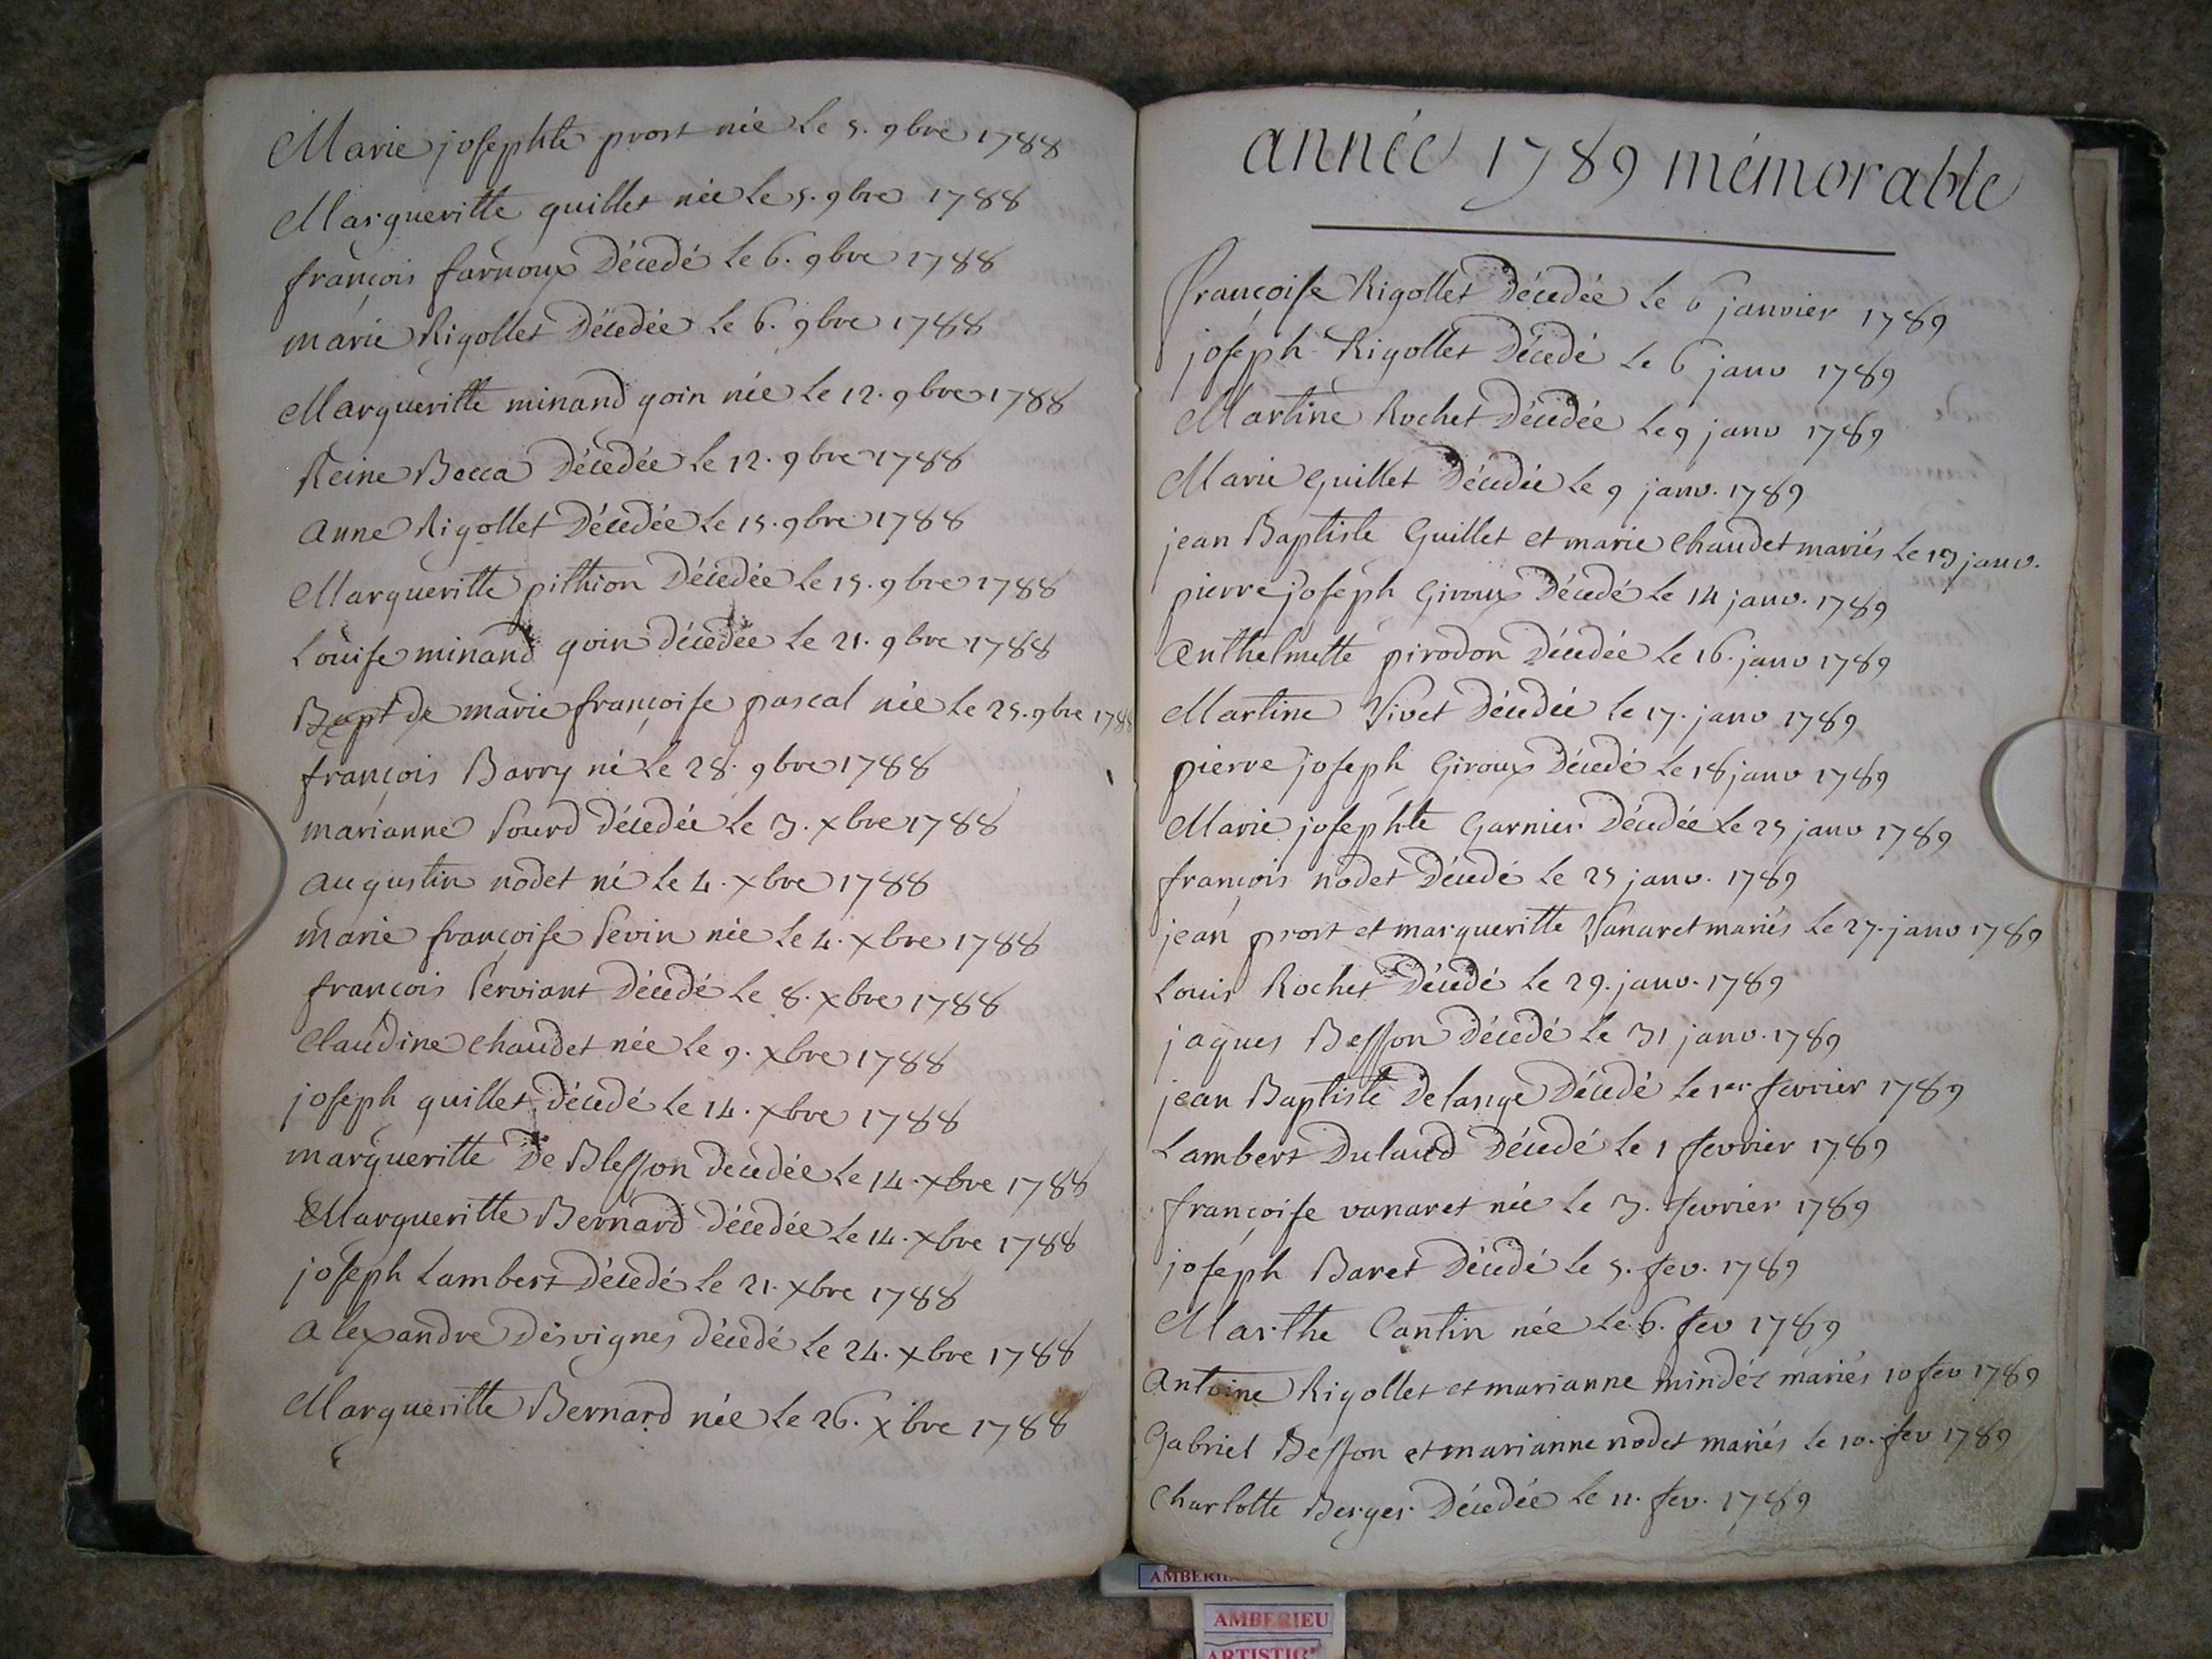 Marie josephte prost née Le 5. 9bre 1788
Margueritte guillet née Le 5. 9bre 1788
françois farnoux Décedé Le 6. 9bre 1788
marie Rigollet Décedée Le 6. 9bre 1788
Margueritte minand goin née Le 12. 9bre 1788
Reine Bocca Décedée Le 12. 9bre 1788
anne Rigollet Décedée Le 15. 9bre 1788
Margueritte pithion Décedée Le 15. 9bre 1788
Louise minand goin décedée Le 21. 9bre 1788
Bapt de marie françoise pascal née Le 25. 9bre 1788
françois Barry né Le 28. 9bre 1788
marianne Sourd décedée Le 3. xbre 1788
augustin nodet né Le 4. xbre 1788
marie françoise Sevin née Le 4. xbre 1788
françois Serviant Décedé Le 8. xbre 1788
Claudine chaudet née Le 9. xbre 1788
joseph guillet décedé Le 14. xbre 1788
margueritte De Blesson decédée Le 14. xbre 1788
Margueritte Bernard décedée Le 14. xbre 1788
joseph Lambert Décedé Le 21. xbre 1788
alexandre Désvignes décedé Le 24. xbre 1788
Margueritte Bernard née Le 26. xbre 1788
année 1789 mémorable
françoise Rigollet Décedée Le 6 janvier 1789
joseph Rigollet Décedé Le 6 janv 1789
Martine Rochet Décedée Le 9 janv 1789
Marie Guillet Décedée Le 9 janv. 1789
jean Baptiste Guillet et marie Chaudet mariés Le 13 janv.
pierre joseph Giroux Décedé Le 14 janv. 1789
Anthelmette pirodon Décedée Le 16. janv 1789
Martine Vivet Décedée Le 17. janv 1789
pierre joseph Giroux Décedé Le 18 janv 1789
Marie josephte Garnier Décedée Le 25 janv 1789
françois nodet Décedé Le 25 janv. 1789
jean prost et margueritte Vanaret mariés Le 27. janv 1789
Louis Rochet Décedé Le 29. janv. 1789
jaques Besson décedé Le 31 janv. 1789
jean Baptiste Delange Décedé Le 1er fevrier 1789
Lambert Dulaud Décedé Le 1 fevrier 1789
françoise vanaret née Le 3. fevrier 1789
joseph Baret Décedé Le 5. fev. 1789
Marthe Cantin née Le 6. fev 1789
Antoine Rigollet et marianne mindés mariés 10 fev 1789
Gabriel Besson et marianne nodet mariés Le 10. fev 1789
Charlotte Berger Décedée Le 11. fev. 1789
AMBERIEU
ARTISTIQ